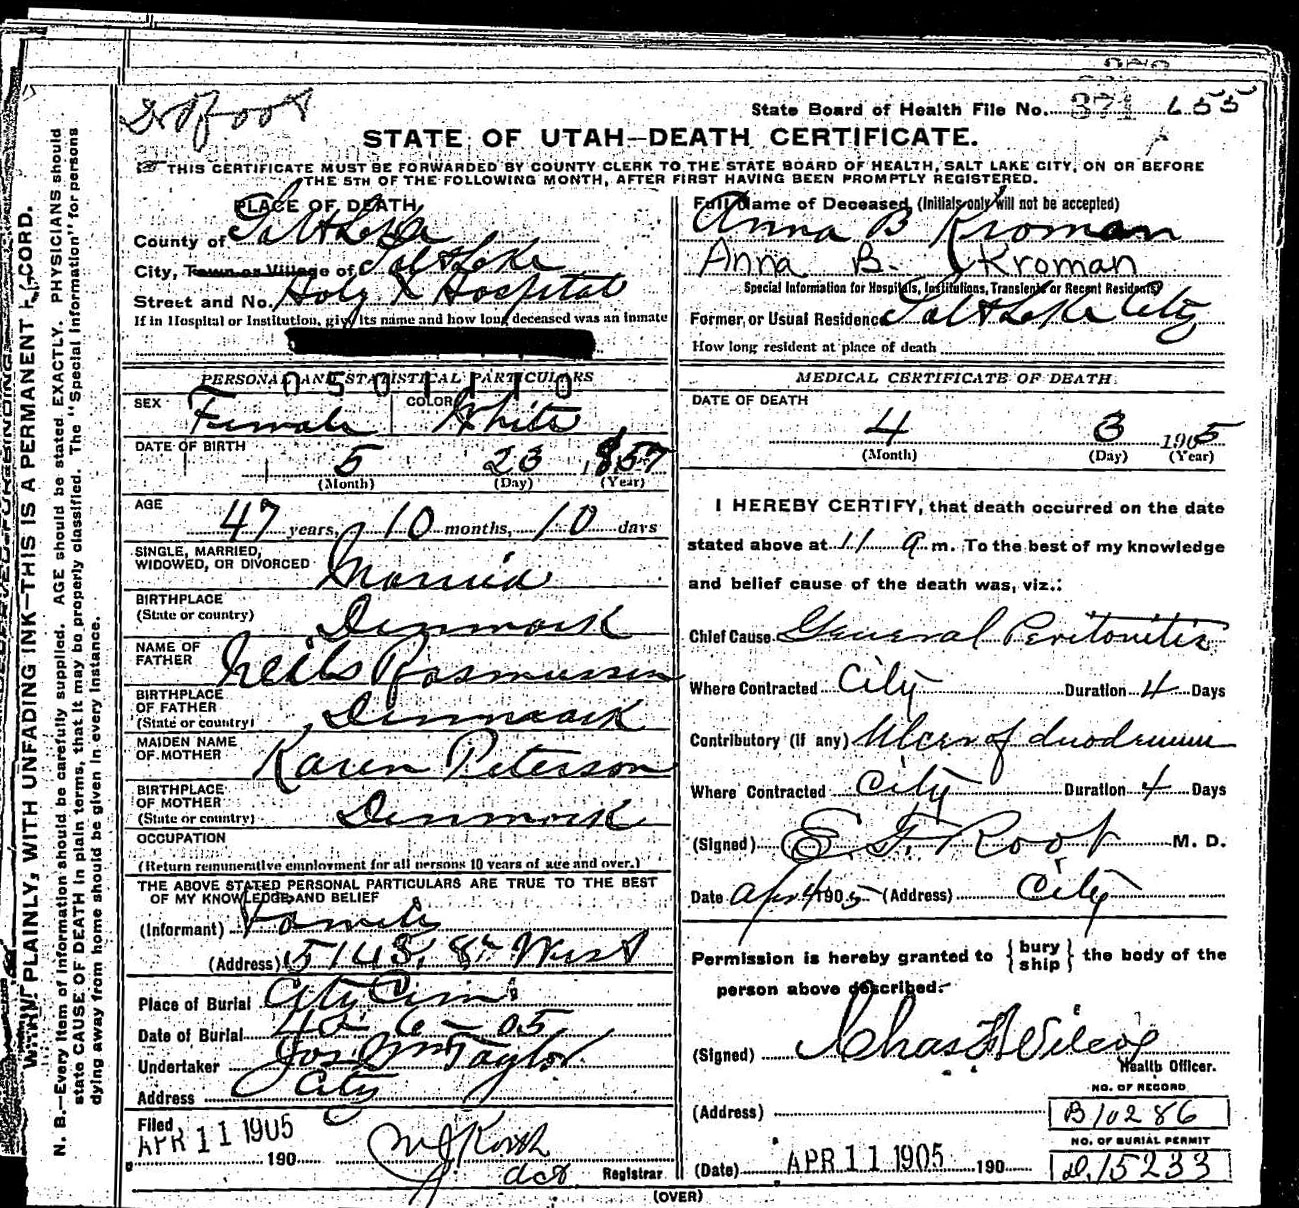 Dr Root
State Board of Health File No. 371 655
STATE OF UTAH—DEATH CERTIFICATE.
THIS CERTIFICATE MUST BE FORWARDED BY COUNTY CLERK TO THE STATE BOARD OF HEALTH, SALT LAKE CITY, ON OR BEFORE
THE 5TH OF THE FOLLOWING MONTH, AFTER FIRST HAVING BEEN PROMPTLY REGISTERED.
PLACE OF DEATH
County of Salt Lake
City, Town or Village of Salt Lake
Street and No. Holy X Hospital
If in Hospital or Institution, give its name and how long deceased was an inmate
0501110
PERSONAL AND STATISTICAL PARTICULARS
SEX Female COLOR White
DATE OF BIRTH 5 23 1857
(Month) (Day) (Year)
AGE 47 years, 10 months, 10 days
SINGLE, MARRIED,
WIDOWED, OR DIVORCED Married
BIRTHPLACE
(State or country) Denmark
NAME OF
FATHER Neils Rasmussen
BIRTHPLACE
OF FATHER
(State or country) Denmark
MAIDEN NAME
OF MOTHER Karen Peterson
BIRTHPLACE
OF MOTHER
(State or country) Denmark
OCCUPATION
(Return remunerative employment for all persons 10 years of age and over.)
THE ABOVE STATED PERSONAL PARTICULARS ARE TRUE TO THE BEST
OF MY KNOWLEDGE AND BELIEF
(Informant) Family
(Address) 514 S. 8th West
Place of Burial City Cem
Date of Burial 4 - 6 - 05
Undertaker Jos Wm Taylor
Address City
Filed
APR 11 1905
190
Act Registrar
Full Name of Deceased (Initials only will not be accepted)
Anna B Kroman
Anna B. Kroman
Special Information for Hospitals, Institutions, Transients or Recent Residents
Former, or Usual Residence Salt Lake City
How long resident at place of death
MEDICAL CERTIFICATE OF DEATH
DATE OF DEATH
4 3 1905
(Month) (Day) (Year)
I HEREBY CERTIFY, that death occurred on the date
stated above at 11 a m. To the best of my knowledge
and belief cause of the death was, viz.:
Chief Cause General Peritonitis
Where Contracted City Duration 4 Days
Contributory (if any) Ulcer of duodenum
Where Contracted City Duration 4 Days
(Signed) E. F. Root M. D.
Date Apr 4 1905 (Address) City
Permission is hereby granted to {bury ship} the body of the
person above described.
(Signed) Chas F Wilcox
Health Officer.
NO. OF RECORD
(Address) B10286
NO. OF BURIAL PERMIT
D. 15233
(Date) APR 11 1905 190
(OVER)
WRITE PLAINLY, WITH UNFADING INK—THIS IS A PERMANENT RECORD.
N. B.—Every item of information should be carefully supplied. AGE should be stated EXACTLY. PHYSICIANS should
state CAUSE OF DEATH in plain terms, that it may be properly classified. The "Special Information" for persons
dying away from home should be given in every instance.